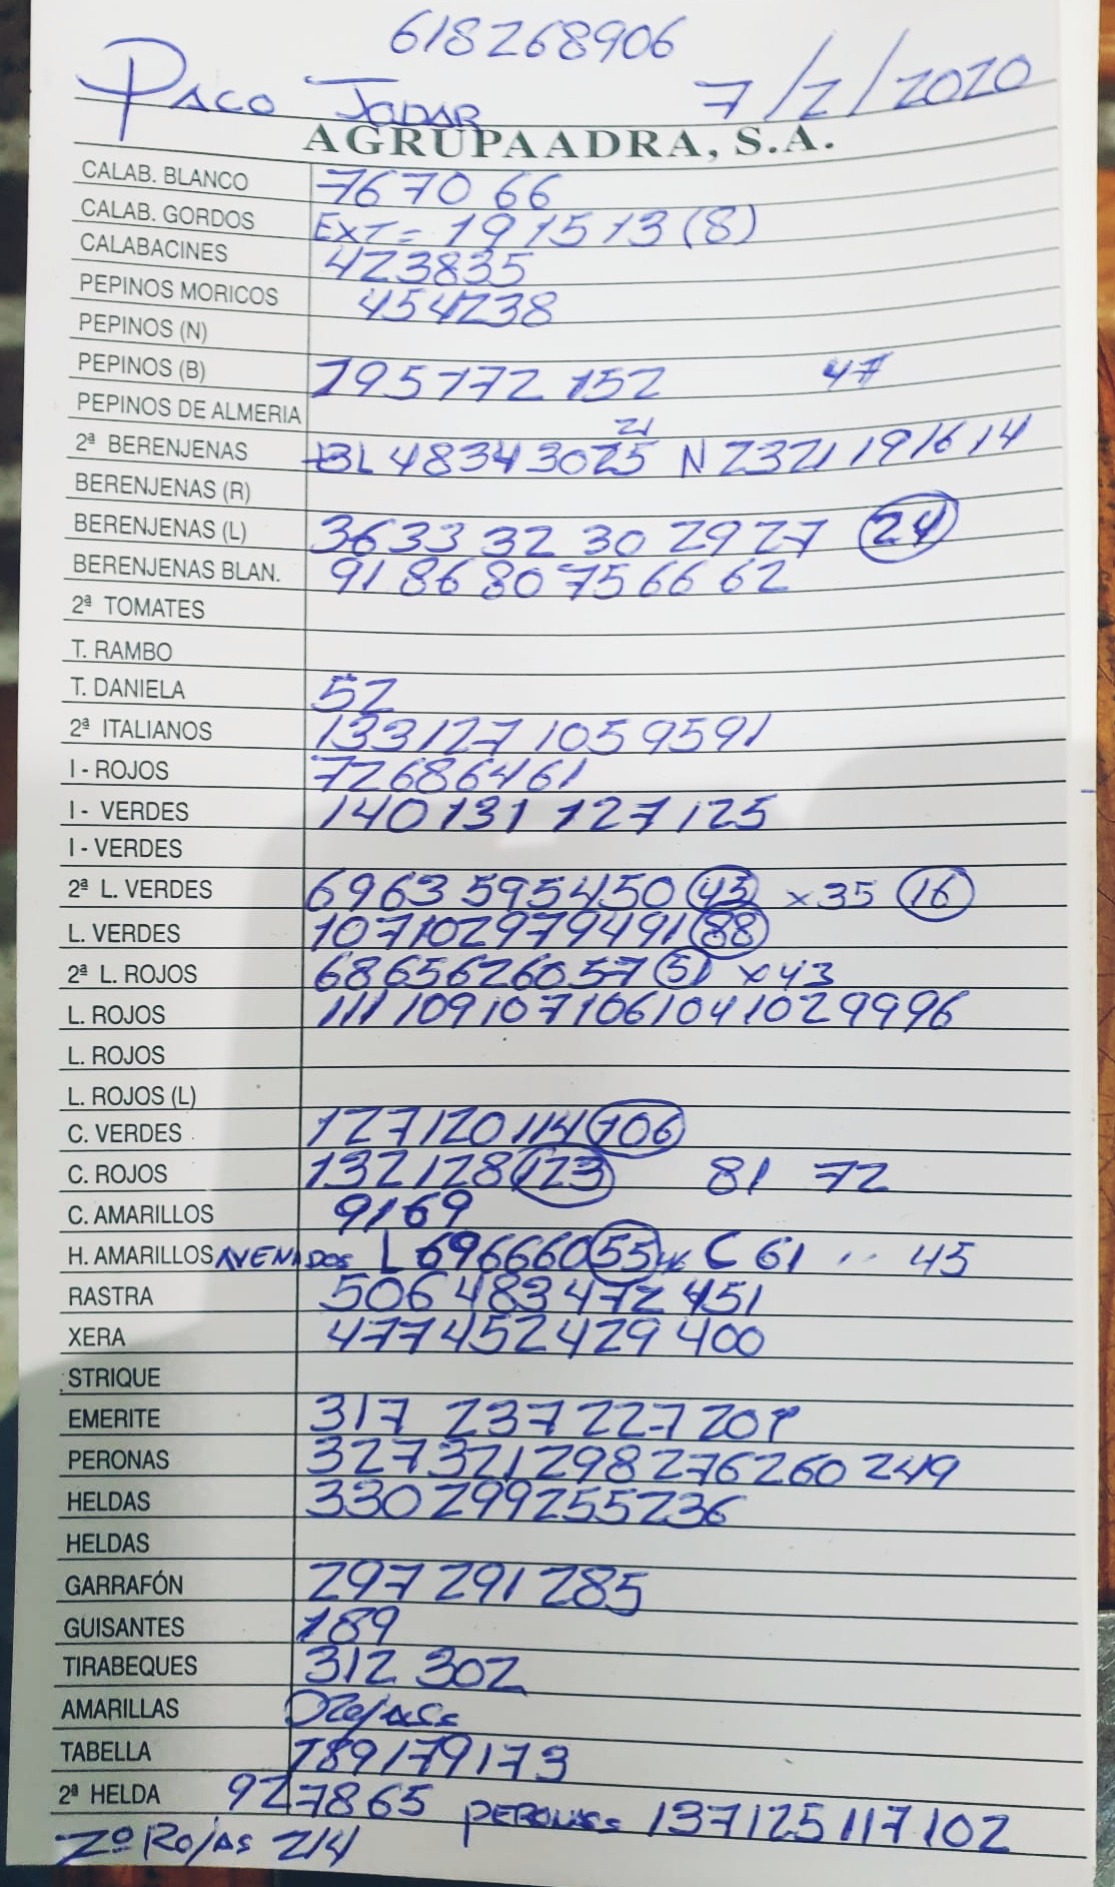 618268906
PACO JODAR 7/2/2020
AGRUPAADRA, S.A.
CALAB. BLANCO 76 70 66
CALAB. GORDOS EXT = 19 15 13 (8)
CALABACINES 42 38 35
PEPINOS MORICOS 45 42 38
PEPINOS (N)
PEPINOS (B) 195 172 152 47
PEPINOS DE ALMERIA
2ª BERENJENAS BL 48 34 30 25 21 N 23 21 19 16 14
BERENJENAS (R)
BERENJENAS (L) 36 33 32 30 29 27 24
BERENJENAS BLAN. 91 86 80 75 66 62
2ª TOMATES
T. RAMBO
T. DANIELA 52
2ª ITALIANOS 133 127 105 95 91
I - ROJOS 72 68 64 61
I - VERDES 140 131 127 125
I - VERDES
2ª L. VERDES 69 63 59 54 50 45 x 35 16
L. VERDES 107 102 97 94 91 88
2ª L. ROJOS 68 65 62 60 57 51 x 43
L. ROJOS 111 109 107 106 104 102 99 96
L. ROJOS
L. ROJOS (L)
C. VERDES 127 120 114 106
C. ROJOS 132 128 123 81 72
C. AMARILLOS 91 69
H. AMARILLOS AVENADOS L 69 66 60 55 C 61 .. 45
RASTRA 506 483 472 451
XERA 477 452 429 400
STRIQUE
EMERITE 317 237 227 201
PERONAS 327 321 298 276 260 249
HELDAS 330 299 255 236
HELDAS
GARRAFÓN 297 291 285
GUISANTES 189
TIRABEQUES 312 302
AMARILLAS
TABELLA 189 179 173
2ª HELDA 92 78 65 PERONAS 137 125 117 102
2º ROJAS 214